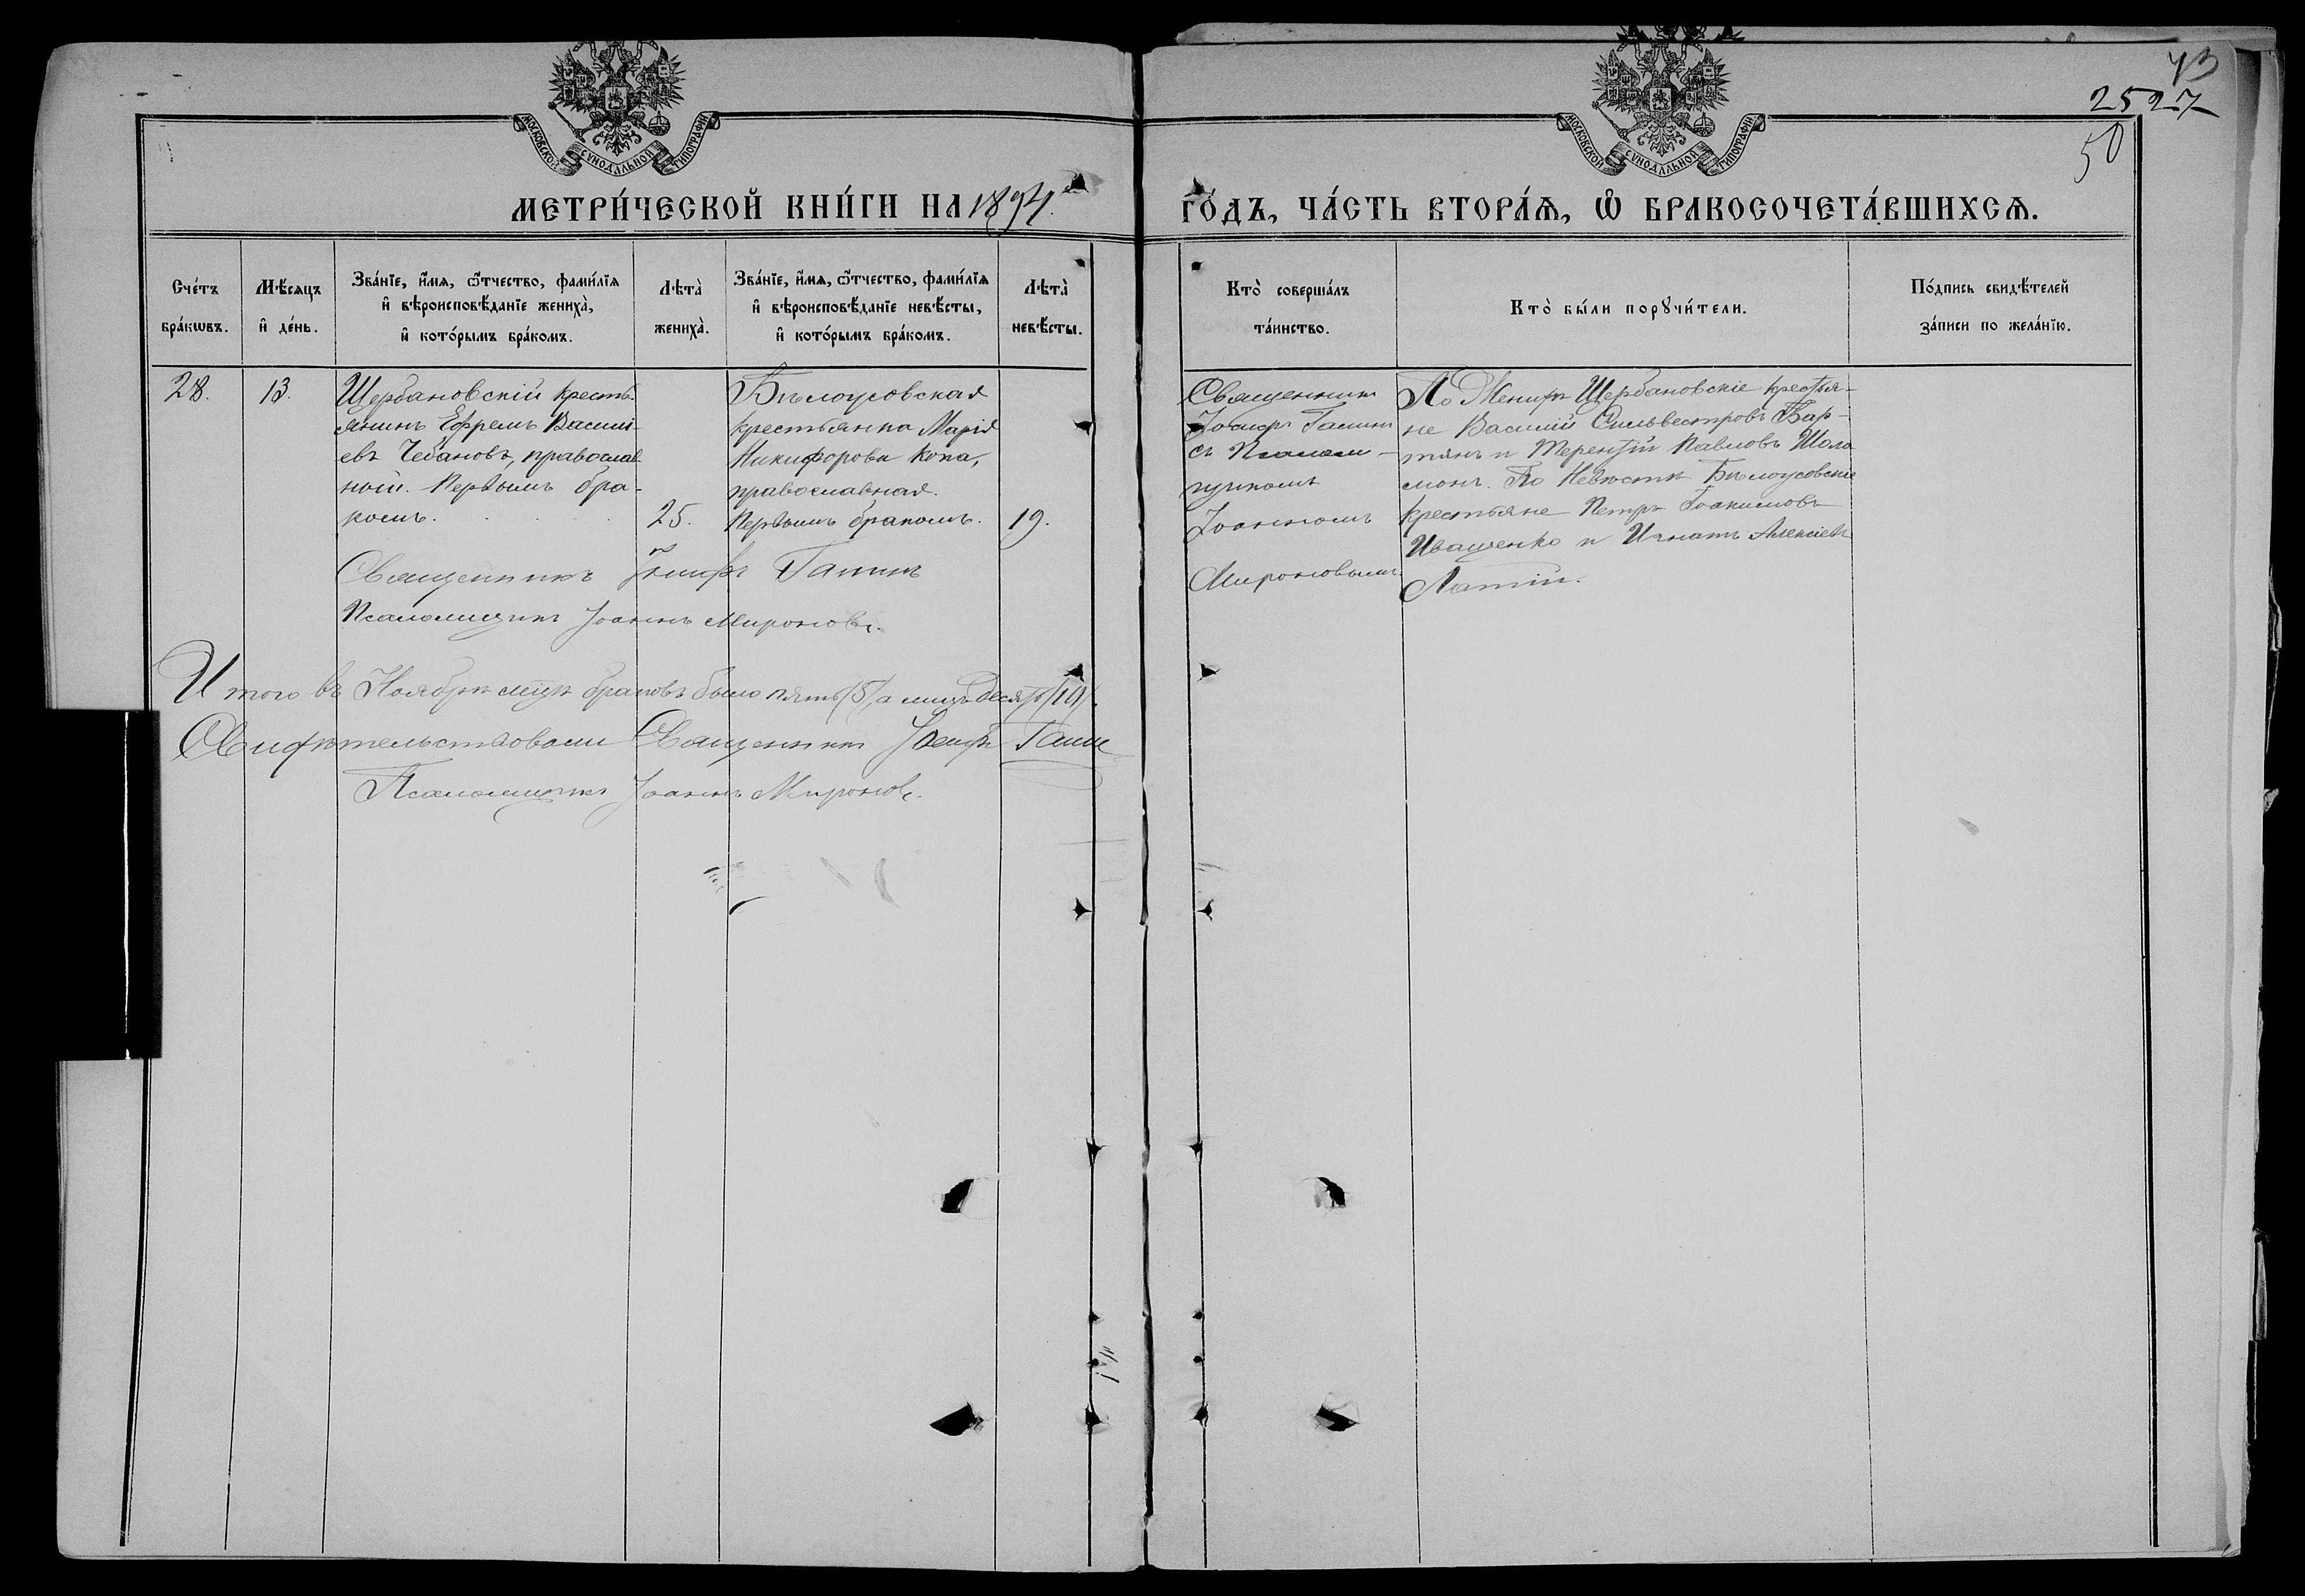 43
2527
50
МОСКОВСКОЙ СѴНОДАЛЬНОЙ ТИПОГРАФІИ
МОСКОВСКОЙ СѴНОДАЛЬНОЙ ТИПОГРАФІИ
МЕТРИ́ЧЕСКОЙ КНИ́ГИ НА 1894
ГО́ДЪ, ЧА́СТЬ ВТОРА́Ѧ, Ѽ БРАКОСОЧЕТА́ВШИХСѦ.
Сче́тъ бра́кѡвъ.
Мѣ́сяцъ и҆ де́нь.
Зва́нїе, и҆́мя, ѻ҆́тчество, фами́лїя и҆ вѣроисповѣ́данїе жениха̀, и҆ кото́рымъ бра́комъ.
Лѣта̀ жениха̀.
Зва́нїе, и҆́мя, ѻ҆́тчество, фами́лїя и҆ вѣроисповѣ́данїе невѣ́сты, и҆ кото́рымъ бра́комъ.
Лѣта̀ невѣ́сты.
Кто̀ соверша́лъ та́инство.
Кто̀ бы́ли порꙋчи́тели.
По́дпись свидѣ́телей за́писи по жела́нїю.
28.
13.
Щербановскій кресть-
янинъ Ефремъ Василі-
евъ Чебановъ, православ-
ной. Первымъ бра-
комъ.
25.
Бѣлоусовская
крестьянка Марія
Никифорова Копа,
православная.
Первымъ бракомъ.
19.
Священникъ
Іосифъ Гапинъ
съ Псалом-
щикомъ
Іоанномъ
Мироновымъ.
По Женихѣ Щербановскіе крестья-
не Василій Сильвестровъ Вар-
тянъ и Терентій Павловъ Шоло
монъ. По Невѣстѣ Бѣлоусовскіе
крестьяне Петръ Іоакимовъ
Иващенко и Игнатъ Алексіевъ
Латій.
Священникъ Іосифъ Гапинъ
Псаломщикъ Іоаннъ Мироновъ.
Итого въ Ноябрѣ мцѣ браковъ было пять (5), а лицъ десять (10).
Свидѣтельствовали Священникъ Іосифъ
Псаломщикъ Іоаннъ Мироновъ.